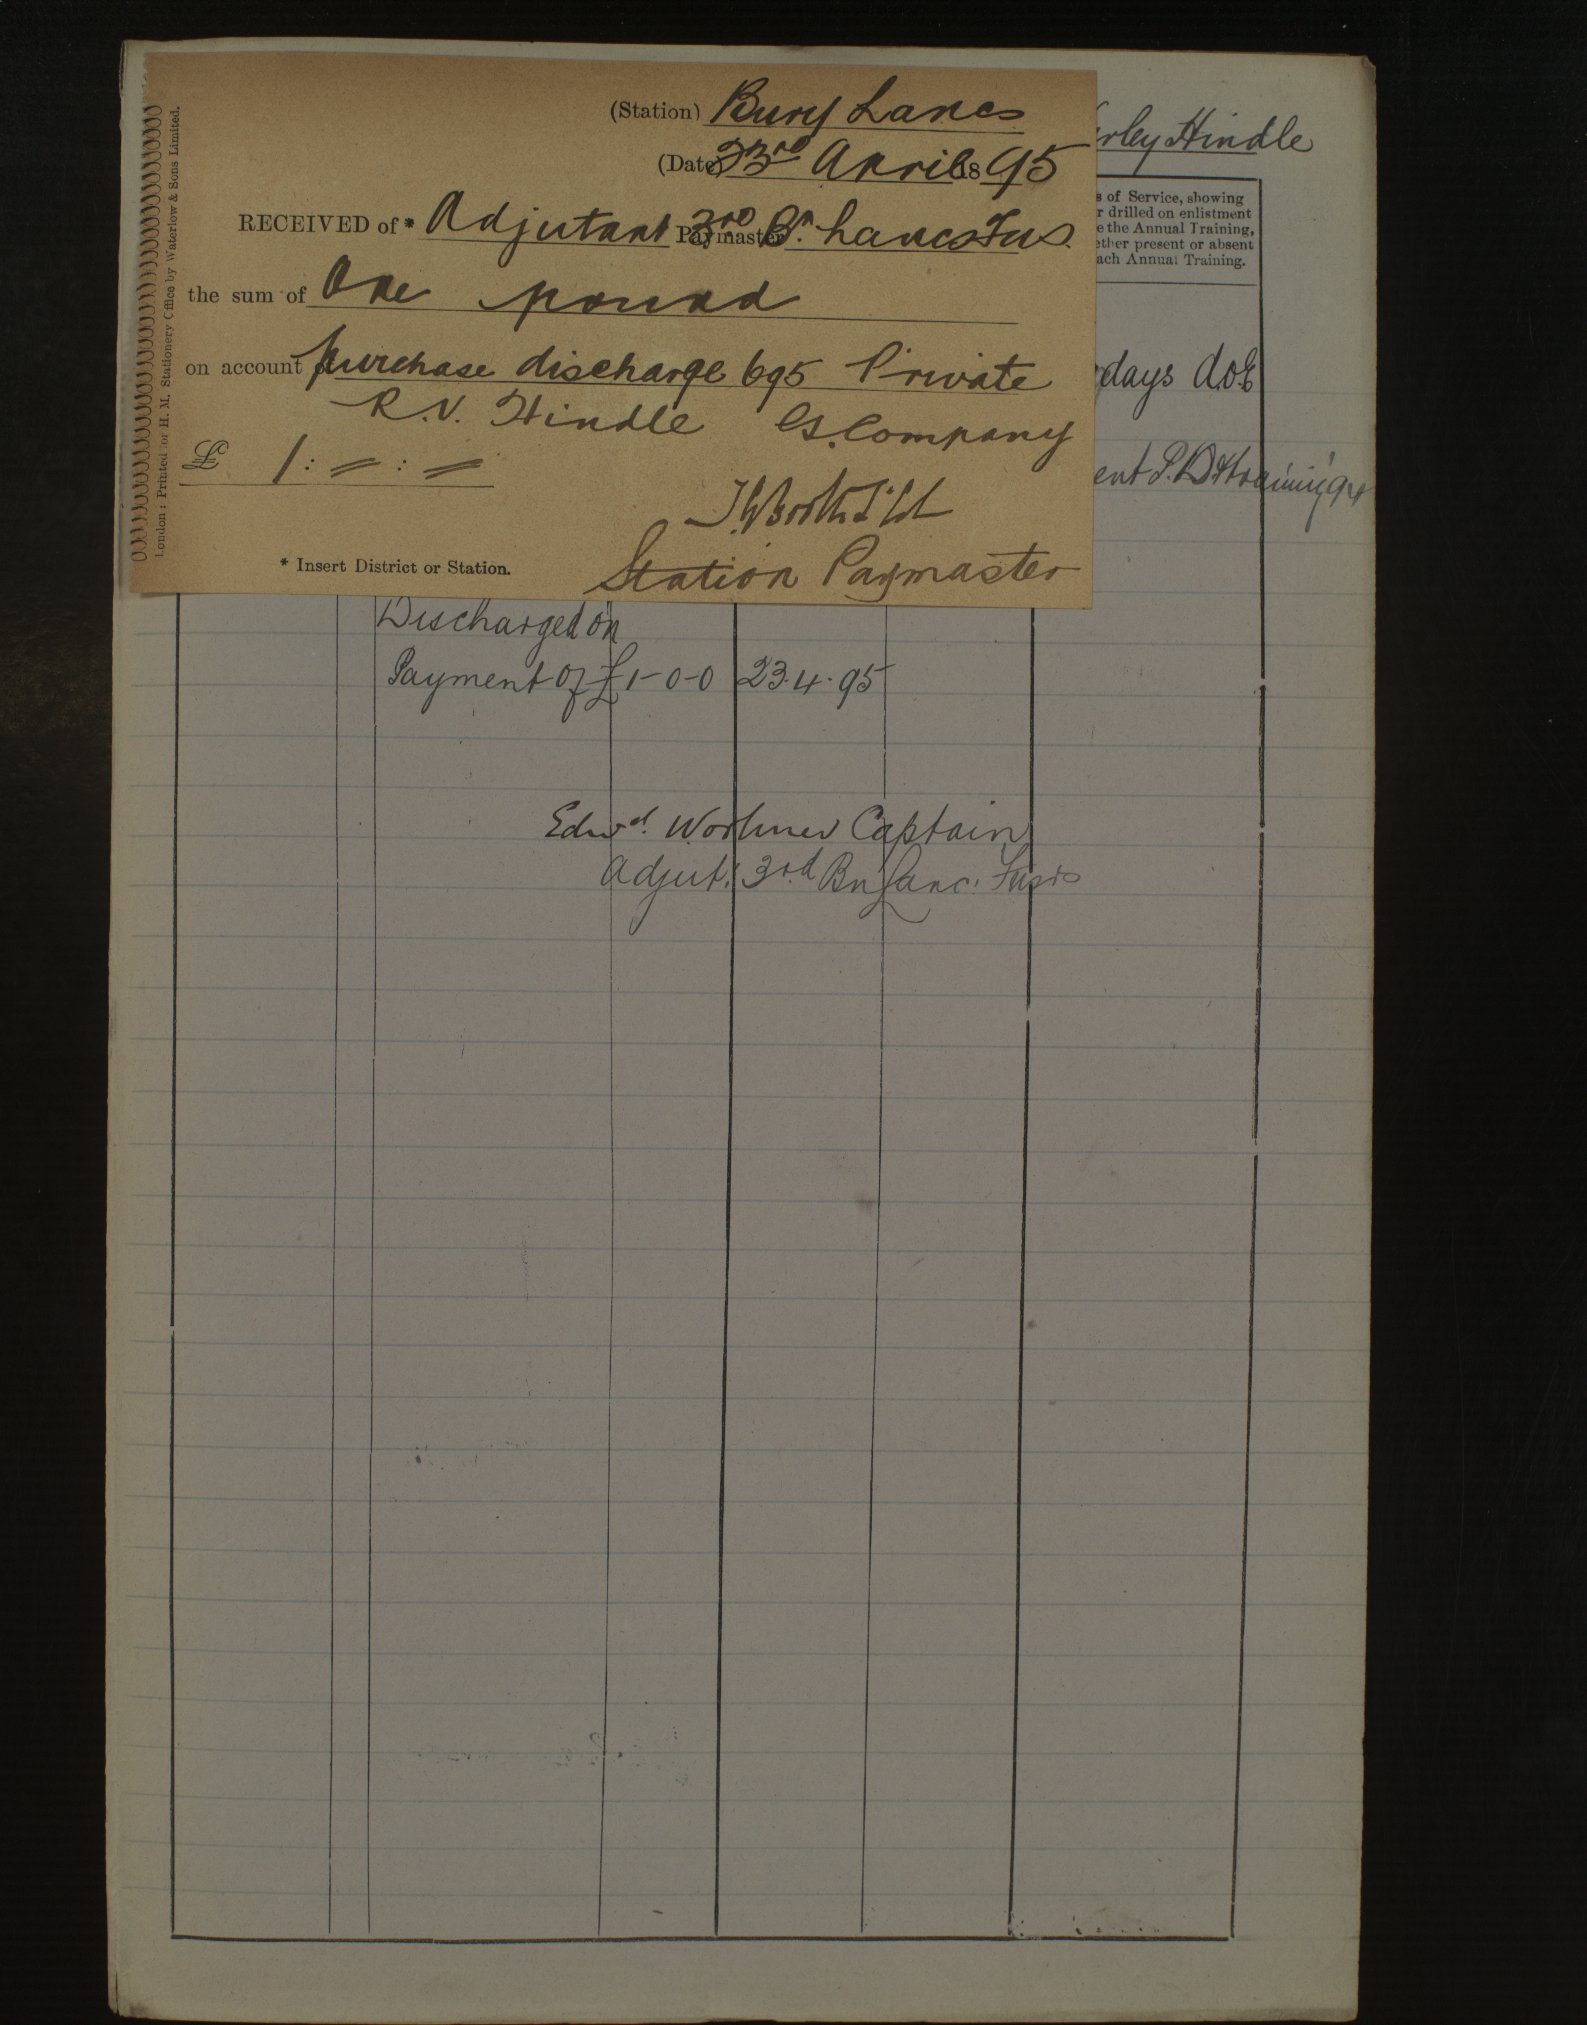 (Station) Bury Lancs
(Date) 23rd April 1895
RECEIVED of * Adjutant Paymaster 3rd Bn. Lancs Fus.
the sum of One pound
on account purchase discharge 695 Private
R.V. Hindle G. Company
£ 1 : = : =
Station Paymaster
* Insert District or Station.
London: Printed for H. M. Stationery Office by Waterlow & Sons Limited.
rley Hindle
s of Service, showing
r drilled on enlistment
e the Annual Training,
ether present or absent
ach Annual Training.
days d.o.E
ent P.D & training 94
Discharged on
Payment of £1-0-0 23.4.95
Edwd. Captain
Adjut. 3rd Bn Lanc: Fusrs